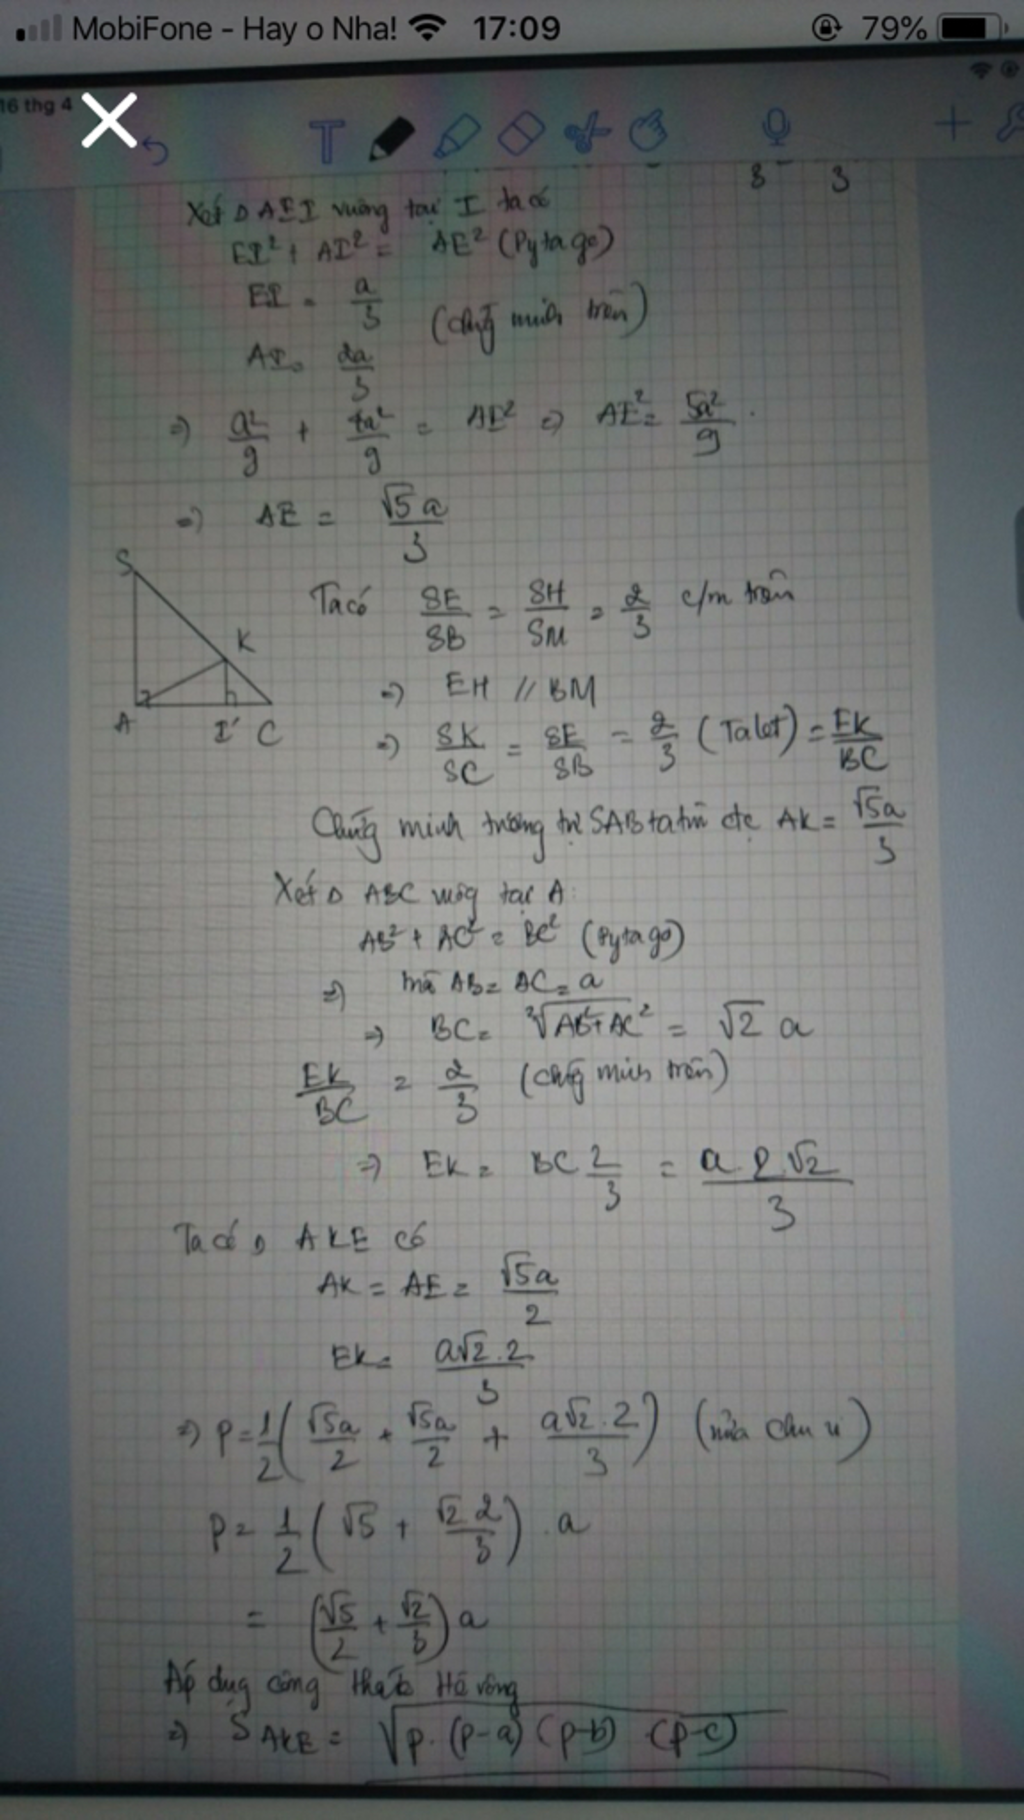 MobiFone - Hay o Nha! 17:09 79%
16 thg 4
3 3
Xét Δ AEI vuông tại I ta có
EI² + AI² = AE² (Pytago)
EI = a/3
(chứg minh trên)
AI = 2a/3
=> a²/9 + 4a²/9 = AE² => AE² = 5a²/9
=> AE = √5 a/3
S
K
A I' C
Ta có SE/SB = SH/SM = 2/3 c/m trên
=> EH // BM
=> SK/SC = SE/SB = 2/3 (Talet) = EK/BC
Chứg minh tương tự SAB ta tìm đc AK = √5a/3
Xét Δ ABC vuôg tại A:
AB² + AC² = BC² (Pytago)
=> mà AB = AC = a
=> BC = ²√AB²+AC² = √2 a
EK/BC = 2/3 (chứg minh trên)
=> EK = BC 2/3 = a 2 √2/3
Ta có Δ AKE có
AK = AE = √5a/2
EK = a√2.2/3
=> P = 1/2 ( √5a/2 + √5a/2 + a√2.2/3 ) (nửa chu vi)
P = 1/2 ( √5 + √2 2/3 ) . a
= ( √5/2 + √2/3 ) a
Áp dụg công thức Hê rông
=> S AKE = √p. (p-a) (p-b) (p-c)